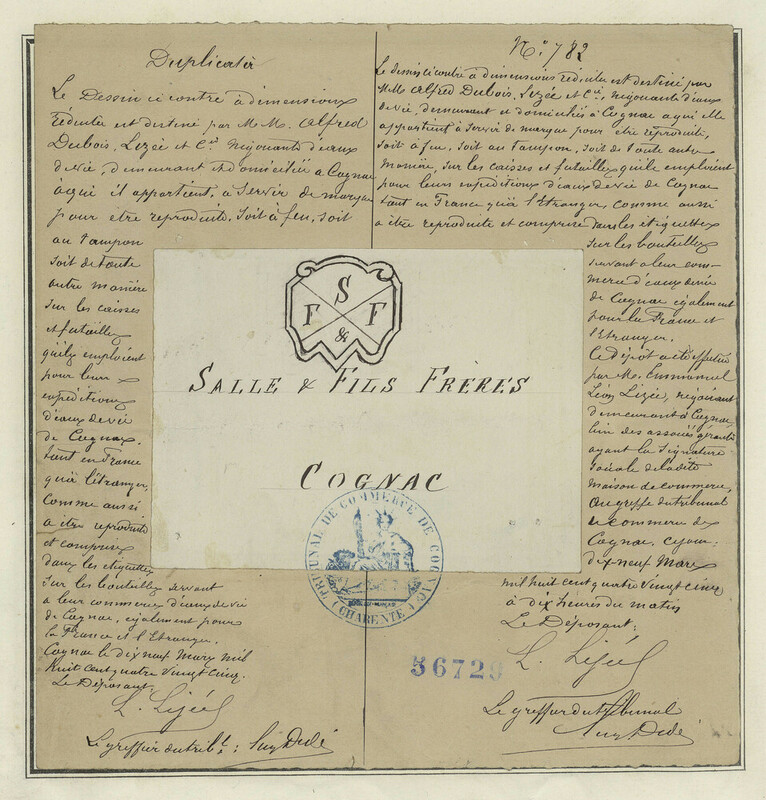 Duplicata
Le Dessin ci contre à dimensions
réduites est destiné par M. M. Alfred
Dubois, Lizée et Cie, Négociants d'eaux
de vie, demeurant et domiciliés à Cognac
à qui il appartient, à servir de marque
pour être reproduite, soit à feu, soit
au tampon
soit de toute
autre manière
sur les caisses
et futailles
qu'ils emploient
pour leurs
expéditions
d'eaux de vie
de Cognac,
tant en France
qu'à l'étranger,
comme aussi
à être reproduite
et comprise
dans les étiquettes
sur les bouteilles servant
à leur commerce d'eaux de vie
de Cognac, également pour
la France et l'Etranger.
Cognac le dix neuf Mars mil
huit cent quatre vingt cinq.
Le Déposant:
L. Lizée
Le greffier du trib.l:
No. 782
Le dessin ci contre à dimensions réduites est destiné par
M.M. Alfred Dubois, Lizée et Cie, Négociants d'eaux
de vie, demeurant et domiciliés à Cognac à qui elle
appartient à servir de marque pour être reproduite,
soit à feu, soit au Tampon, soit de toute autre
Manière, sur les caisses et futailles qu'ils emploient
pour leurs expéditions d'eaux de vie de Cognac
tant en France qu'à l'Etranger comme aussi
à être reproduite et comprise dans les étiquettes
sur les bouteilles
servant à leur com-
merce d'eaux de vie
de Cognac également
pour la France et
l'Etranger.
Ce dépôt a été effectué
par M. Emmanuel
Léon Lizée, négociant
demeurant à Cognac,
l'un des associés gérants
ayant la signature
sociale de la dite
maison de commerce,
au greffe du tribunal
de commerce de
Cognac, ce jour:
dix neuf Mars
mil huit cent quatre vingt cinq
à dix heures du matin
Le Déposant:
L. Lizée
Le greffier du tribunal
S
F F
&
SALLE & FILS FRÈRES
COGNAC
TRIBUNAL DE COMMERCE DE COGNAC
(CHARENTE)
56729